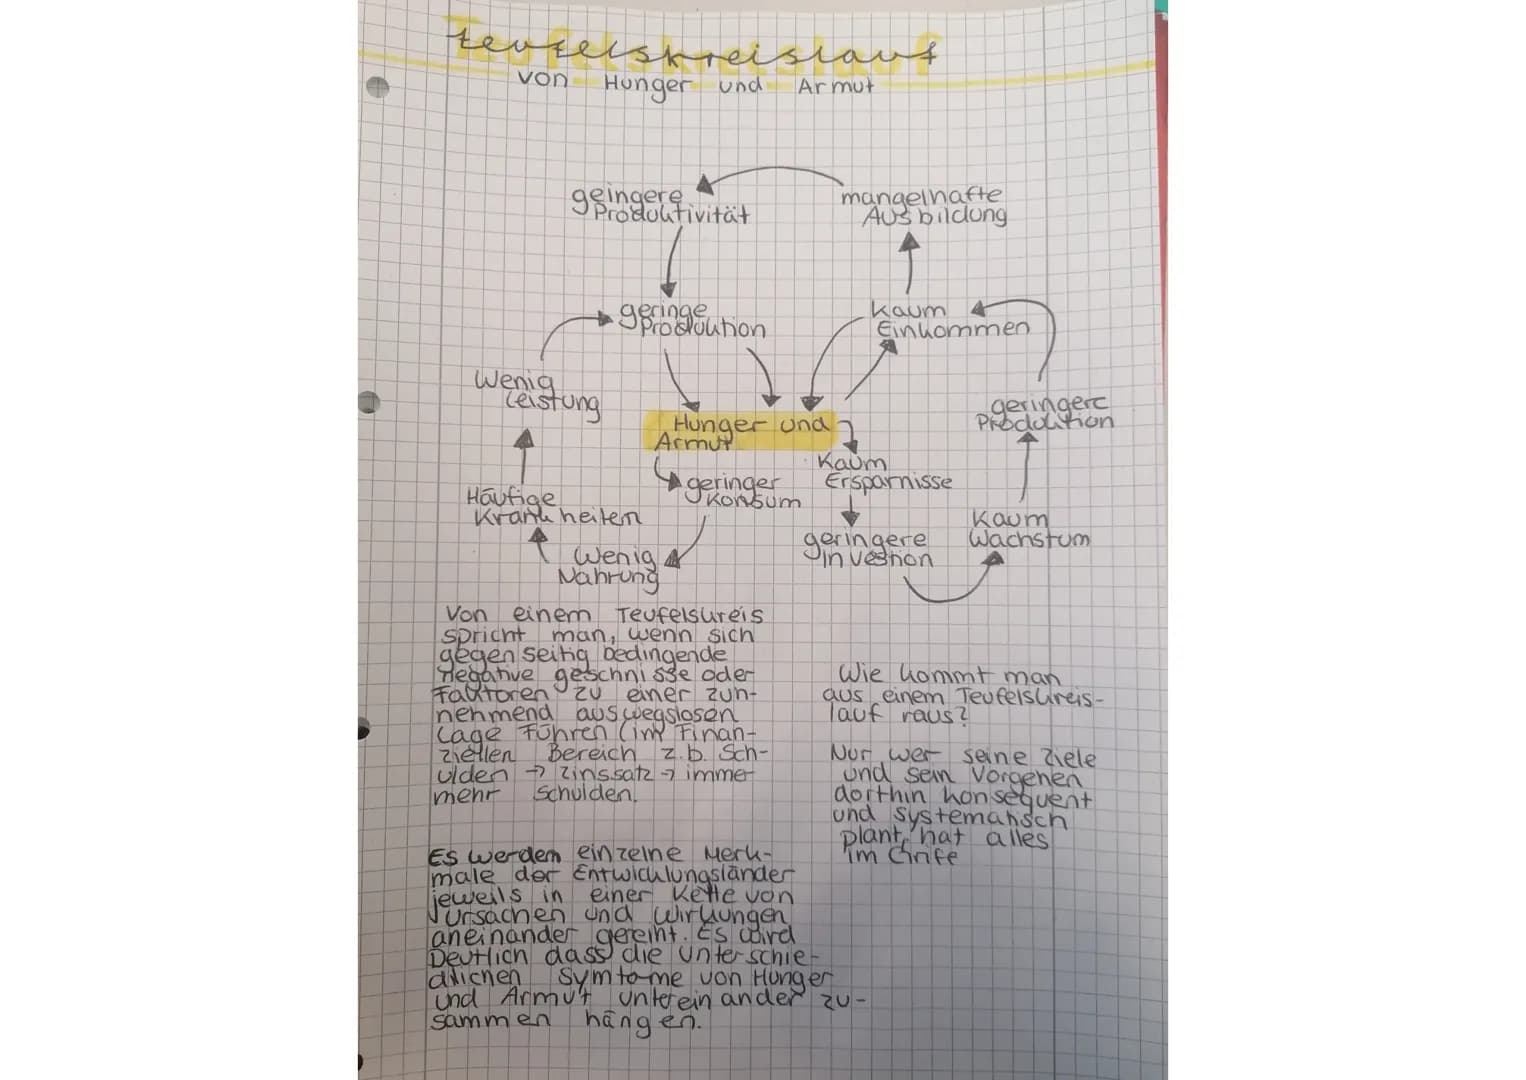 Teufelskreislauf
von Hunger und Armut
geingere
Produktivität
mangelhafte
Ausbildung
geringe
Produktion
Kaum
Einkommen
Wenig
Leistung
geringere
Produktion
Hunger und
Armut
Kaum
Ersparnisse
geringer
Konsum
Häufige
Krankheiten
geringere
Investion
Kaum
Wachstum
Wenig
Nahrung
Von einem Teufelskreis
spricht man, wenn sich
gegenseitig bedingende
negative geschnisse oder
Faktoren zu einer zun-
nehmend auswegslosen
Lage führen (im Finan-
ziellen Bereich z.b. Sch-
ulden → Zinssatz → immer
mehr Schulden.
Es werden einzelne Merk-
male der Entwicklungsländer
jeweils in einer Kette von
Ursachen und Wirkungen
aneinander gereiht. Es wird
Deutlich dass die Unterschie-
dlichen Symtome von Hunger
und Armut untereinander zu-
sammen hängen.
Wie kommt man
aus einem Teufelskreis-
lauf raus?
Nur wer seine Ziele
und sein Vorgehen
dorthin konsequent
und systematisch
plant, hat alles
im Grife